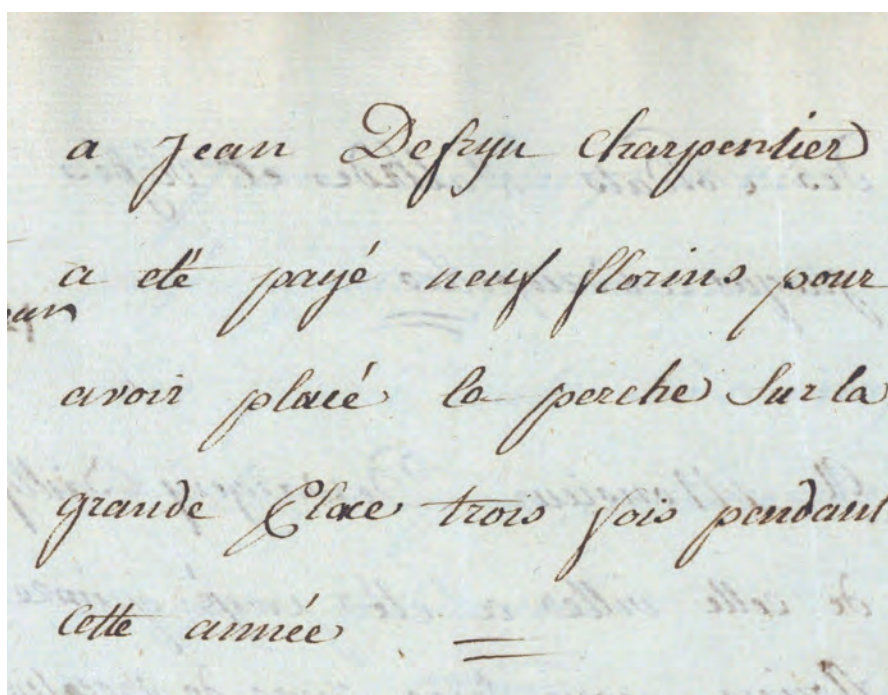 a Jean Defryn Charpentier
a eté payé neuf florins pour
avoir placé la perche Sur la
grande Place trois fois pendant
cette année